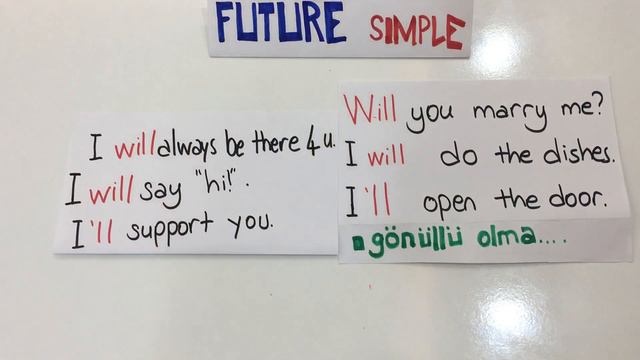 FUTURE SIMPLE
I will always be there 4 u.
I will say "hi!".
I'll support you.
Will you marry me?
I will do the dishes.
I'll open the door.
gönüllü olma....